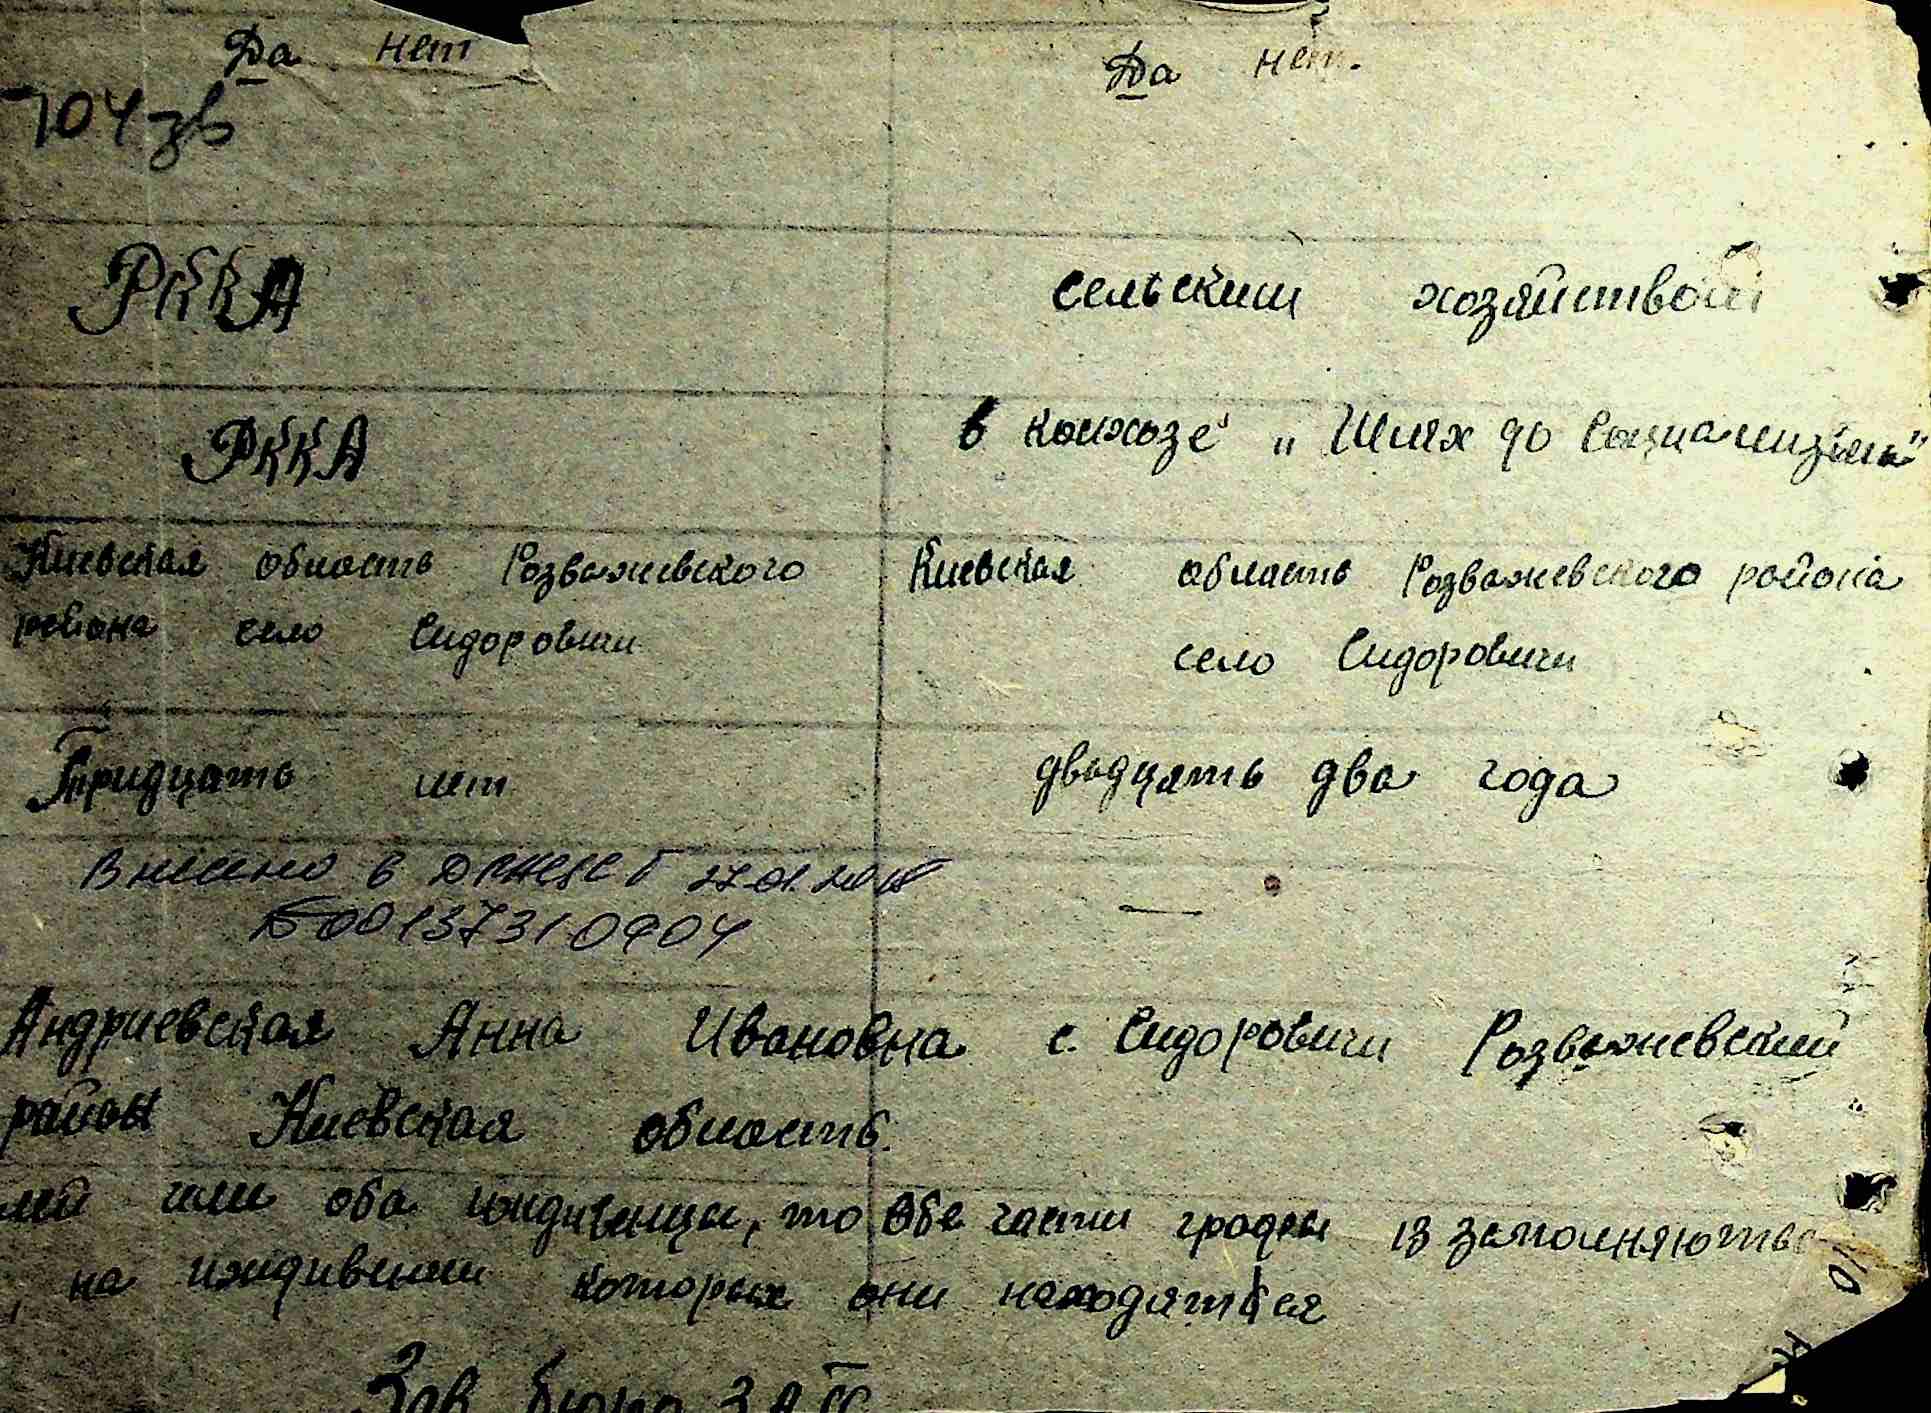 Да нет
Да нет.
704 зв
РККА
сельским хозяйством
РККА
в колхозе "Шлях до Социализма"
Киевская область Розважевского
района село Сидоровичи
Киевская область Розважевского района
село Сидоровичи
Тридцать лет
двадцать два года
Внесено в 27.01.
—
Андриевская Анна Ивановна с. Сидоровичи Розважевский
район Киевская область.
лей или оба иждивенцы, то обе части графы 13 заполняются
, на иждивении которых они находяться
Зав бюро ЗАГС